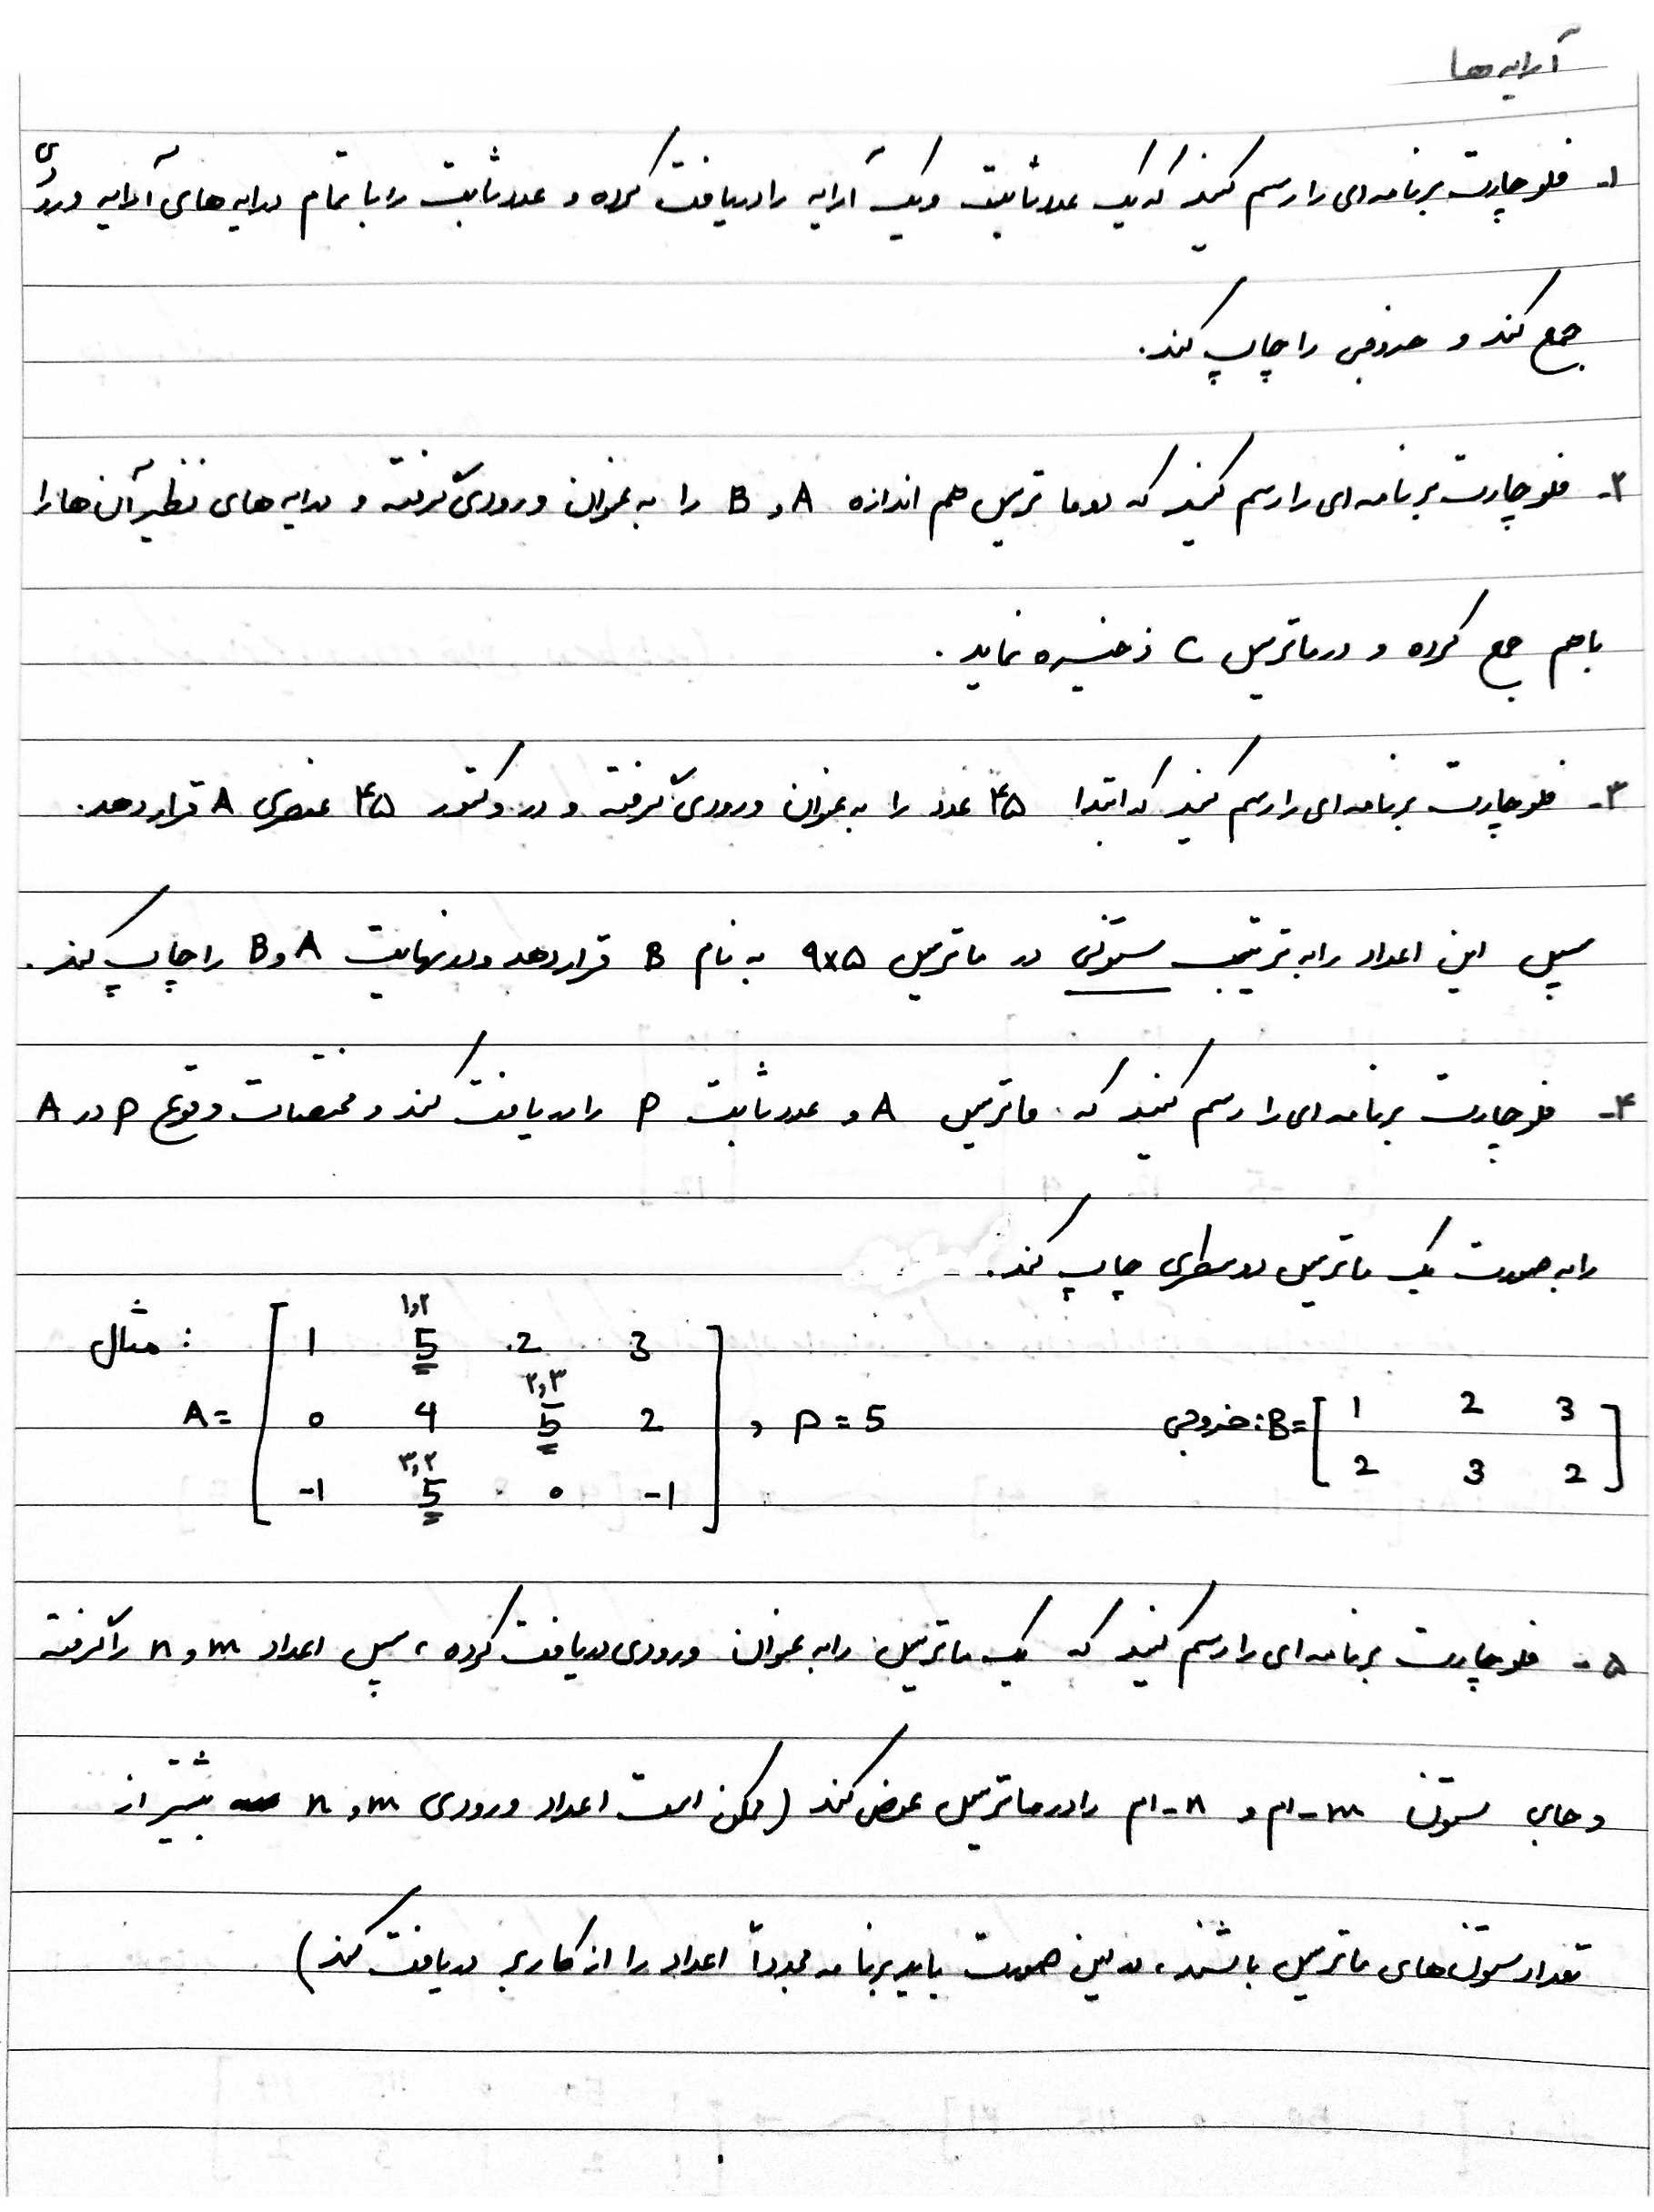 آرایه‌ها
۱- فلوچارت برنامه‌ای را رسم کنید که یک عدد ثابت و یک آرایه را دریافت کرده و عدد ثابت را با تمام درایه‌های آرایه ورودی
جمع کند و خروجی را چاپ کند.
۲- فلوچارت برنامه‌ای را رسم کنید که دو ماتریس هم اندازه A و B را به عنوان ورودی گرفته و درایه‌های نظیر آن‌ها را
باهم جمع کرده و در ماتریس C ذخیره نماید.
۳- فلوچارت برنامه‌ای را رسم کنید که ابتدا ۴۵ عدد را به عنوان ورودی گرفته و در وکتور ۴۵ عنصری A قرار دهد.
سپس این اعداد را به ترتیب ستونی در ماتریس ۹x۵ به نام B قرار دهد و در نهایت A و B را چاپ کند.
۴- فلوچارت برنامه‌ای را رسم کنید که ماتریس A و عدد ثابت P را دریافت کند و مختصات وقوع P در A
را به صورت یک ماتریس دو سطری چاپ کند.
مثال:
۱,۲
1 5 2 3
۲,۳
A= 0 4 5 2 , P = 5
۳,۲
-1 5 0 -1
خروجی: B= 1 2 3
2 3 2
۵- فلوچارت برنامه‌ای را رسم کنید که یک ماتریس را به عنوان ورودی دریافت کرده، سپس اعداد m و n را گرفته
و جای ستون m-ام و n-ام را در ماتریس عوض کند (ممکن است اعداد ورودی m و n بیشتر از
تعداد ستون‌های ماتریس باشند، در این صورت باید برنامه مجدداً اعداد را از کاربر دریافت کند)